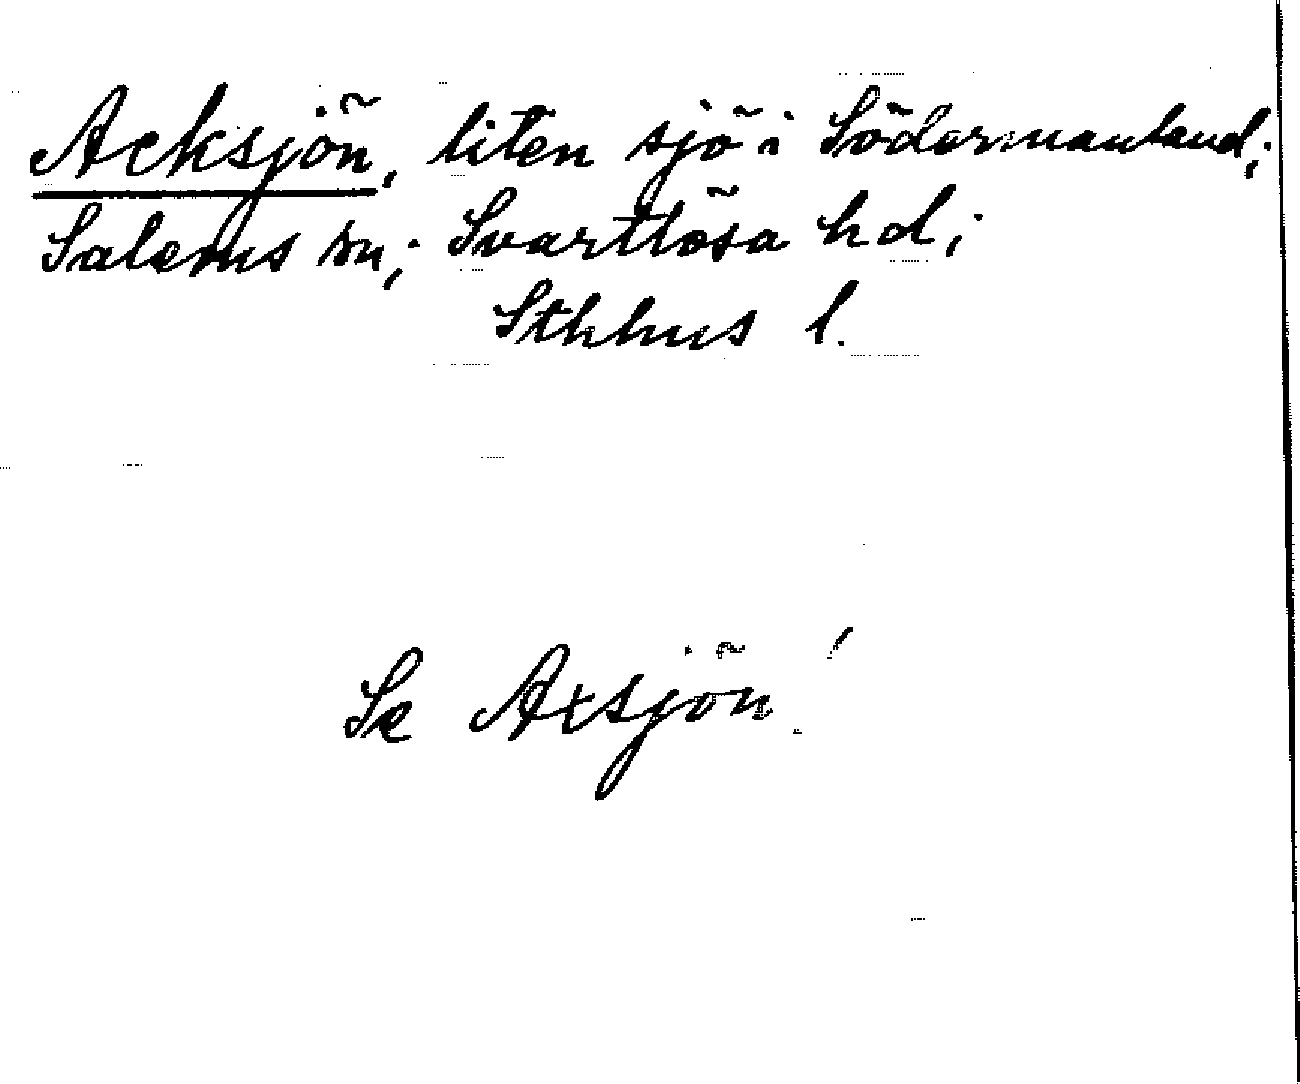 Acksjön, liten sjö i Södermanland;
Salems sn; Svartlösa hd;
Sthlms l.
Se Axsjön!